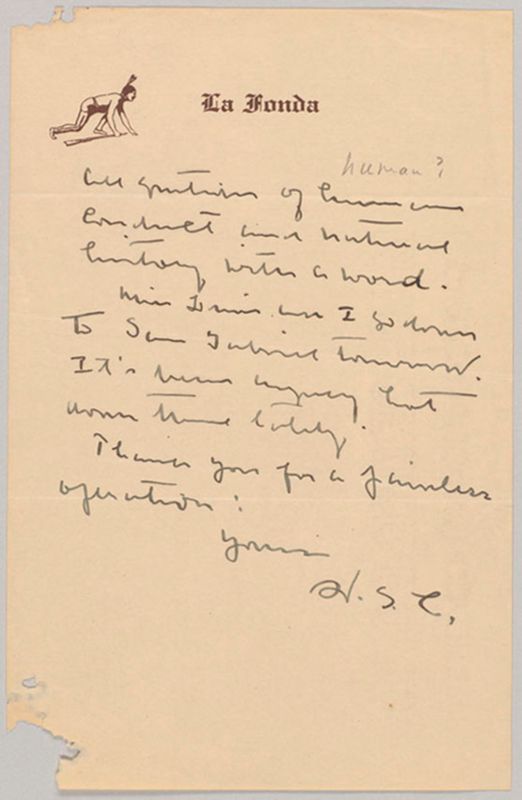 La Fonda
human?
all questions of human
conduct and natural
history with a word.
Miss Lewis and I go down
to San Gabriel tomorrow.
It's been hot
down there lately.
Thank you for a painless
operation!
Yours
W. S. C.